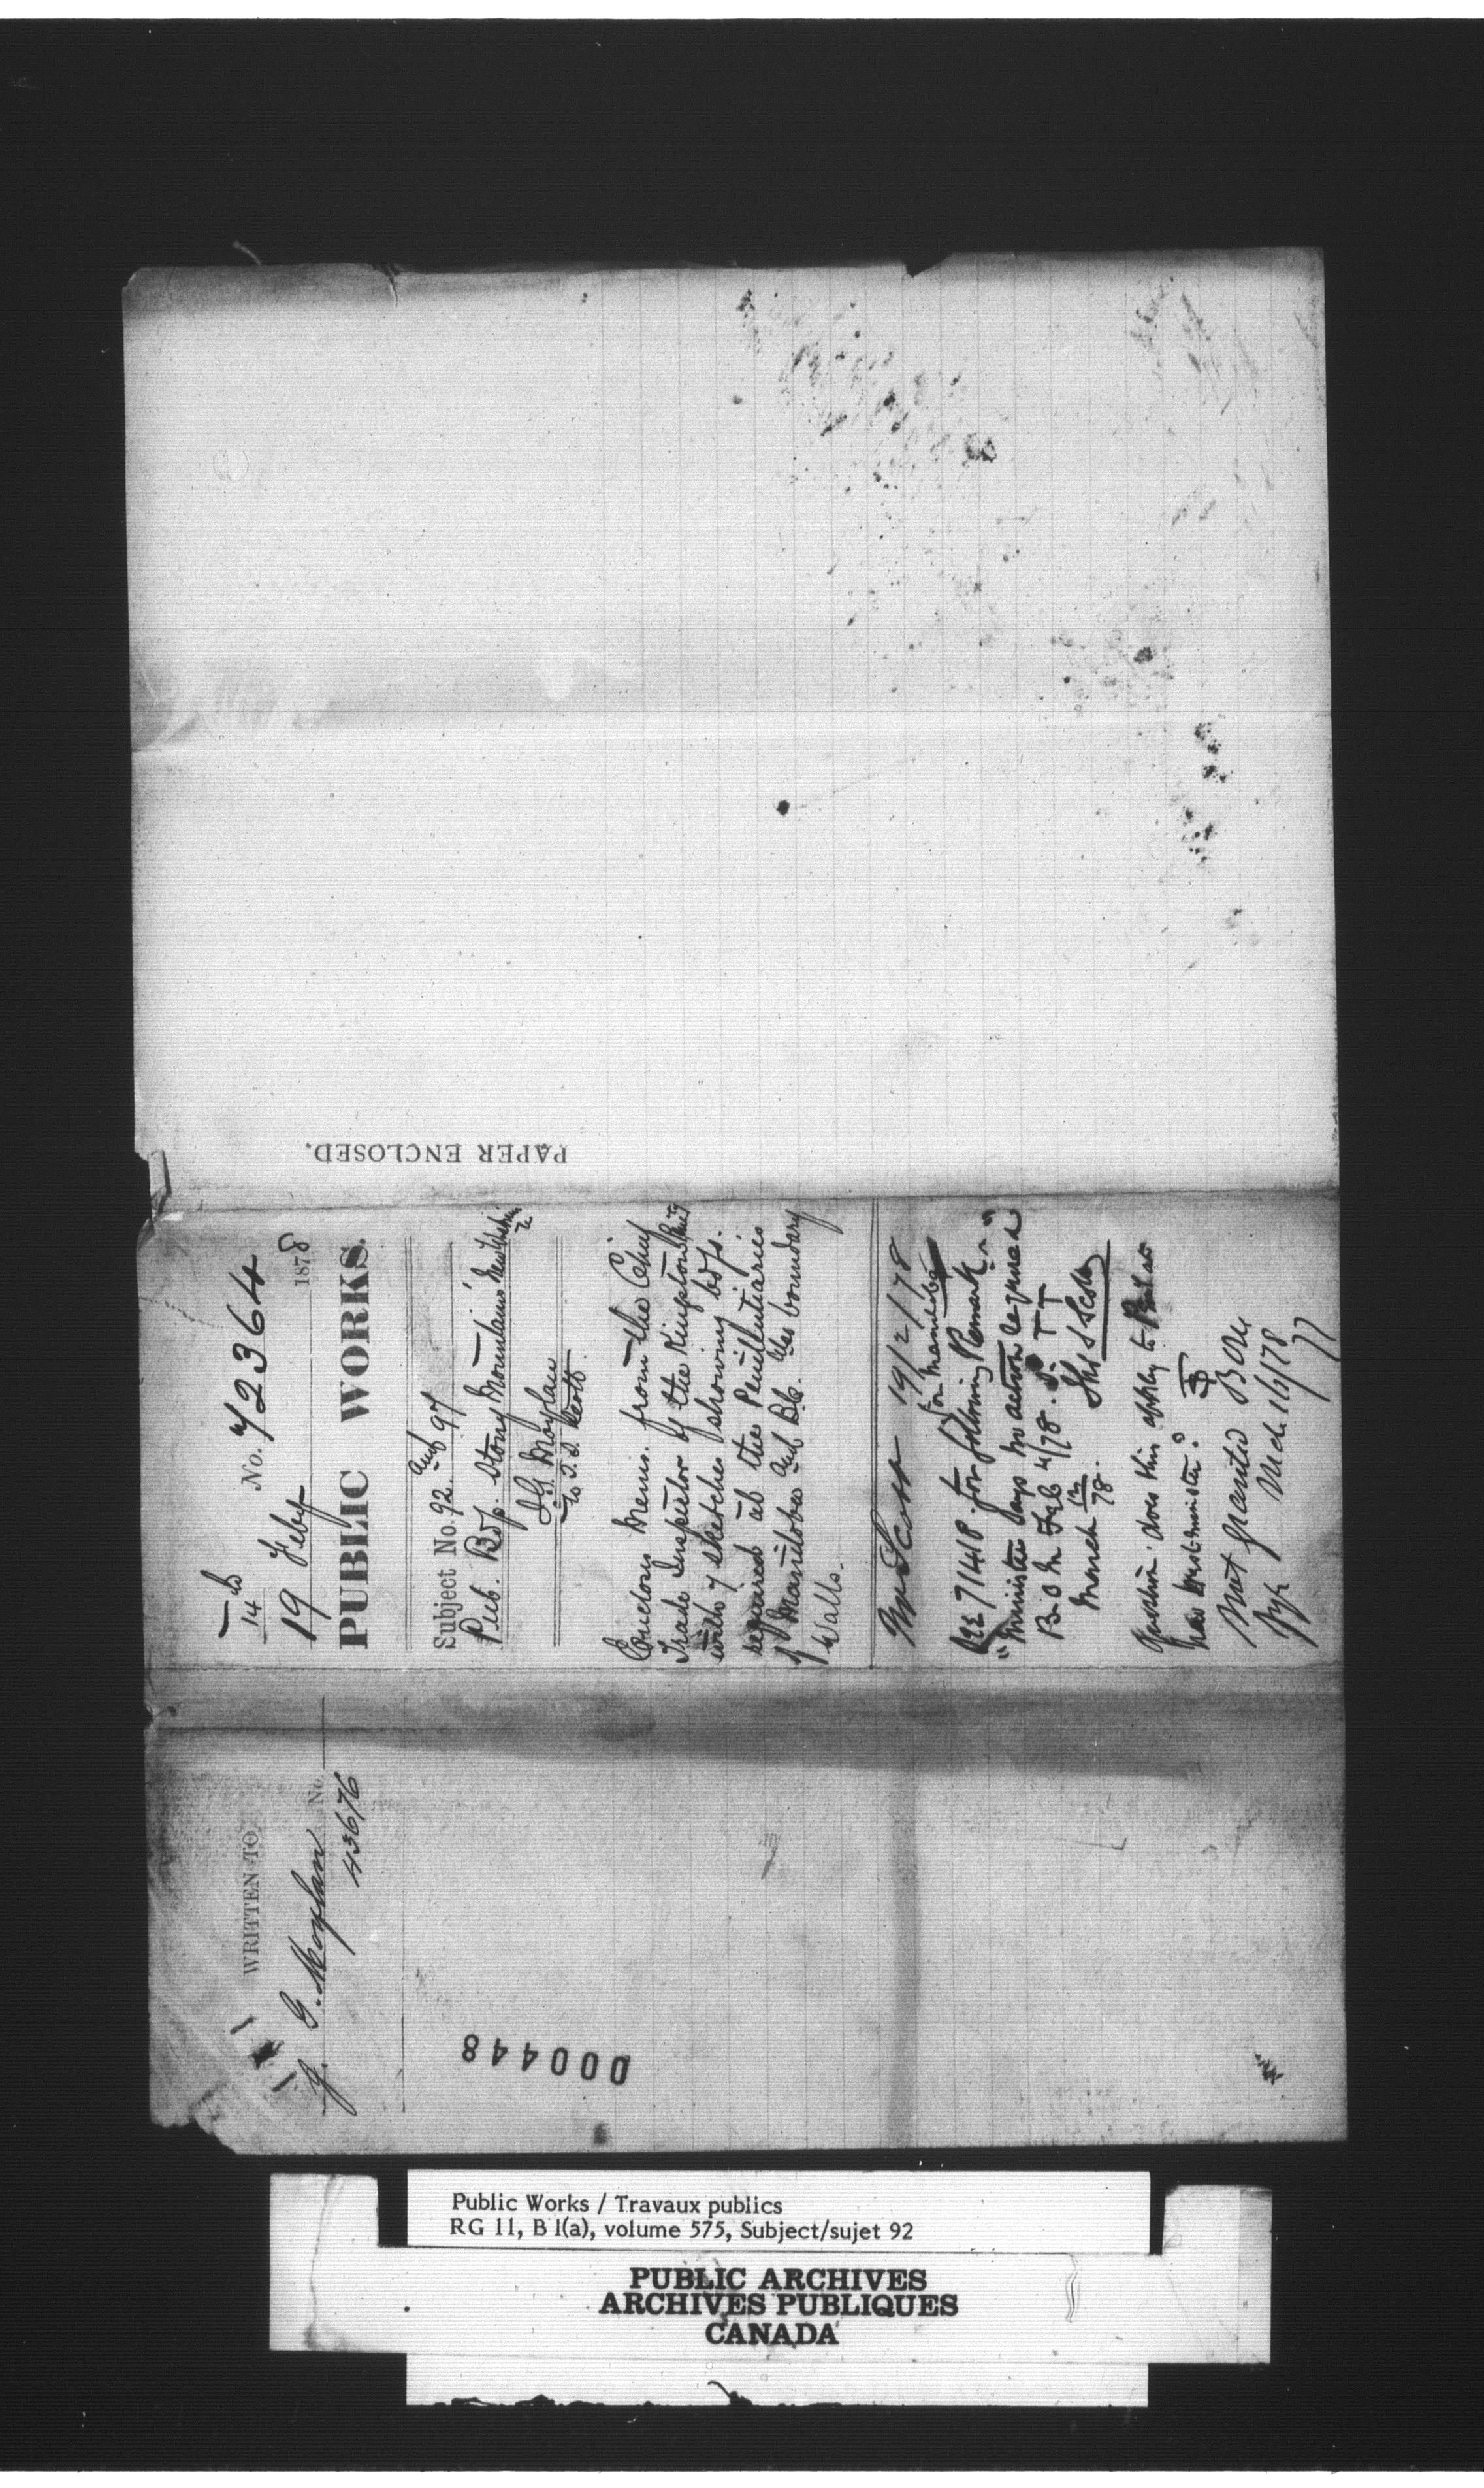 14
No. 72364
19 Feby 1878
PUBLIC WORKS.
Subject No. 92 and 97
Pub. Bdgs. Stony Mountain
J. G. Moylan
to T. S. Scott.
Encloses Memo. from the Chief
Trade Inspector of the Kingston
with 7 sketches showing bdgs.
required at the Penitentiaries
of Manitoba and B.C. boundary
Walls.
Mr Scott 19/2/78
for Manitoba
See 71418 for following Remark
"Minister says no action required
B. O. M. Feb 4/78.
March 12/78.
Question. does this apply to
New Westminster?
Not granted
Mch 16/78
PAPER ENCLOSED.
WRITTEN TO
J. G. Moylan No.
43676
000448
Public Works / Travaux publics
RG 11, B 1(a), volume 575, Subject/sujet 92
PUBLIC ARCHIVES
ARCHIVES PUBLIQUES
CANADA